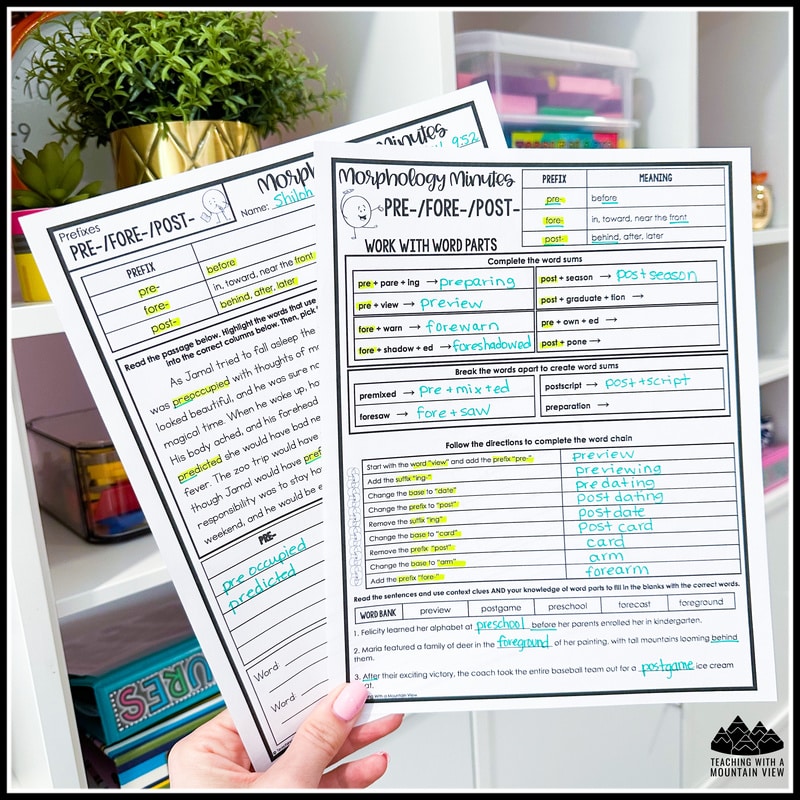 Prefixes
PRE-/FORE-/POST-
Name: Shiloh
952
PREFIX
pre- before
fore- in, toward, near the front
post- behind, after, later
Read the passage below. Highlight the words that use
into the correct columns below. Then, pick
As Jamal tried to fall asleep the
was preoccupied with thoughts of
looked beautiful, and he was sure
magical time. When he woke up,
His body ached, and his forehead
predicted she would have bad
fever. The zoo trip would have
though Jamal would have
responsibility was to stay
weekend, and he would be
PRE-
pre occupied
predicted
Word:
Word:
Morphology Minutes
PRE-/FORE-/POST-
WORK WITH WORD PARTS
PREFIX MEANING
pre- before
fore- in, toward, near the front
post- behind, after, later
Complete the word sums
pre + pare + ing → preparing post + season → postseason
pre + view → preview post + graduate + tion →
fore + warn → forewarn pre + own + ed →
fore + shadow + ed → foreshadowed post + pone →
Break the words apart to create word sums
premixed → pre + mix + ed postscript → post + script
foresaw → fore + saw preparation →
Follow the directions to complete the word chain
Start with the word "view" and add the prefix "pre-" preview
Add the suffix "ing-" previewing
Change the base to "date" predating
Change the prefix to "post" post dating
Remove the suffix "ing" post date
Change the base to "card" post card
Remove the prefix "post" card
Change the base to "arm" arm
Add the prefix "fore-" forearm
Read the sentences and use context clues AND your knowledge of word parts to fill in the blanks with the correct words.
WORD BANK preview postgame preschool forecast foreground
1. Felicity learned her alphabet at preschool before her parents enrolled her in kindergarten.
2. Maria featured a family of deer in the foreground of her painting, with tall mountains looming behind
them.
3. After their exciting victory, the coach took the entire baseball team out for a postgame ice cream
With a Mountain View
URES
TEACHING WITH A
MOUNTAIN VIEW